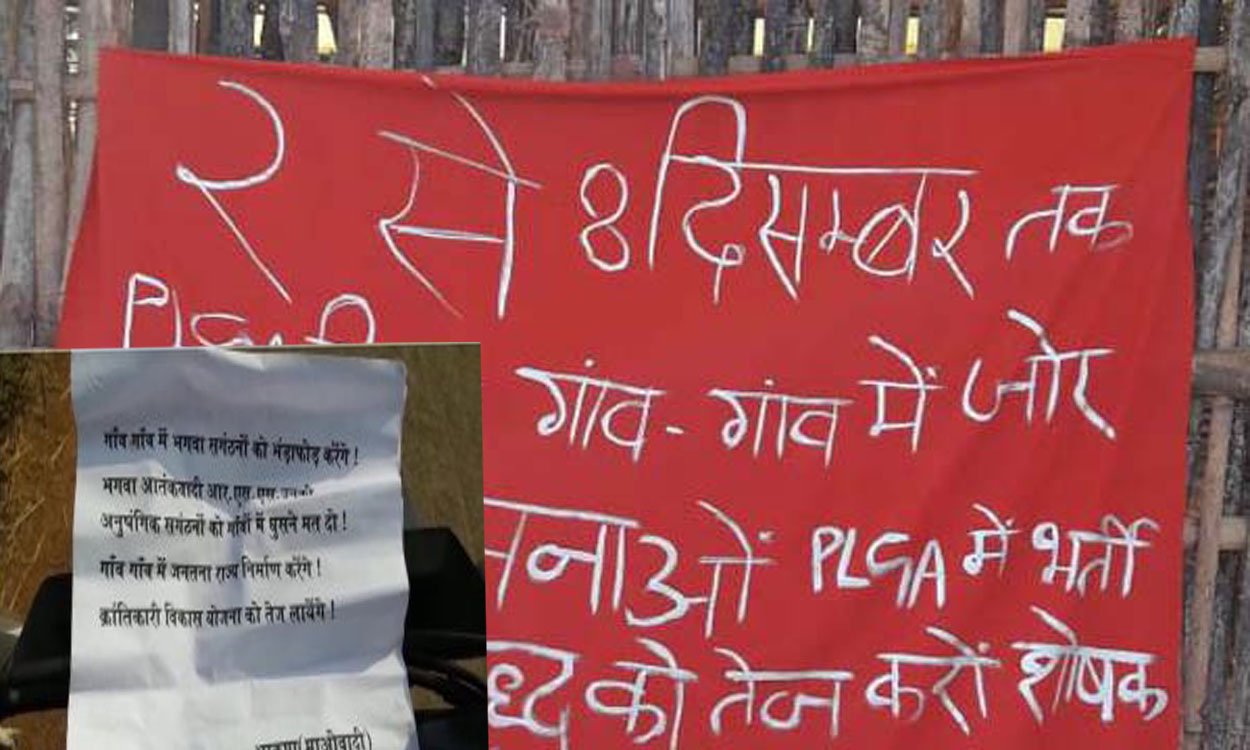 २ से 8 दिसम्बर तक
गांव - गांव में जोर
नाओं PLGA में भर्ती
को तेज करों शोषक
गाँव गाँव में भगवा सगंठनों को भंड़ाफोड़ करेंगे !
भगवा आतंकवादी आर.एस.एस.
अनुषंगिक सगंठनों को गाँवों में घुसने मत दो !
गाँव गाँव में जनतना राज्य निर्माण करेंगे !
क्रांतिकारी विकास योजना को तेज लायेंगे !
(माओवादी)